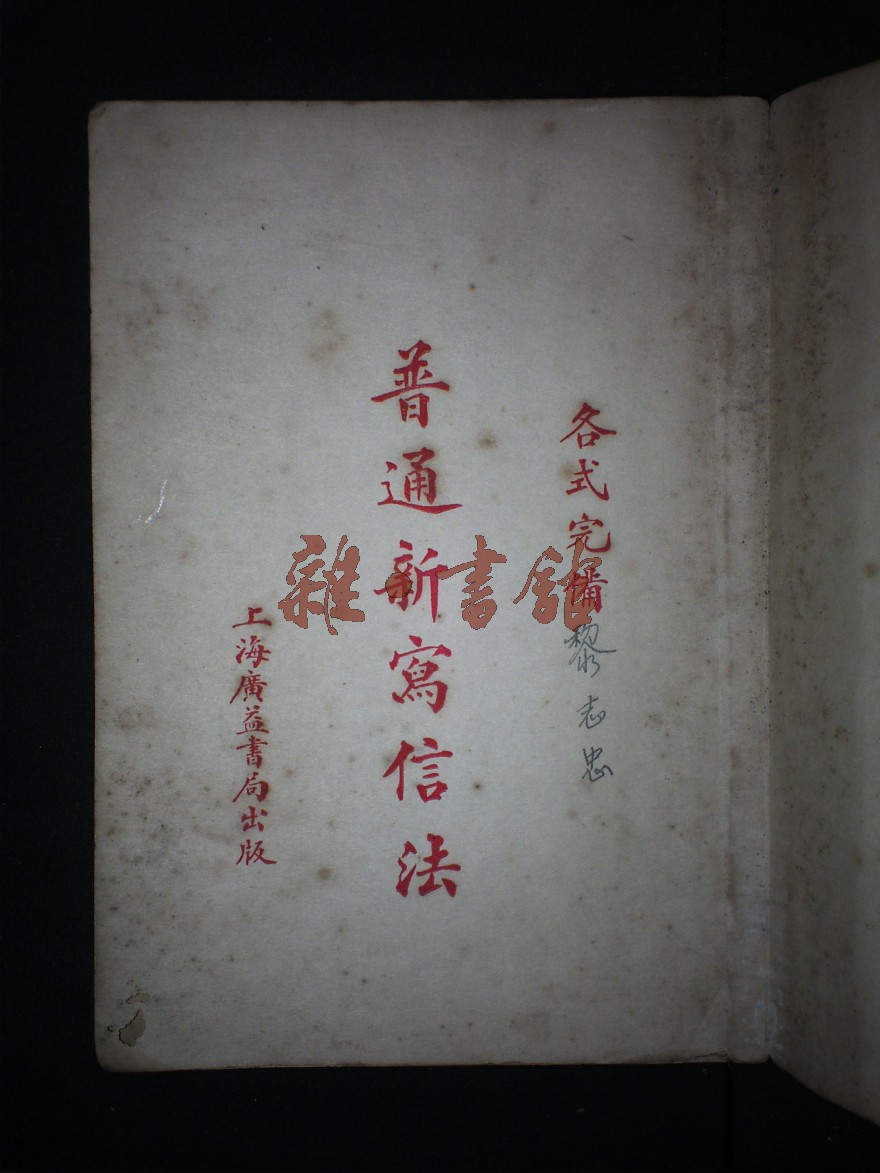 各式完備
黎志忠
普通新寫信法
上海廣益書局出版
雜·書館